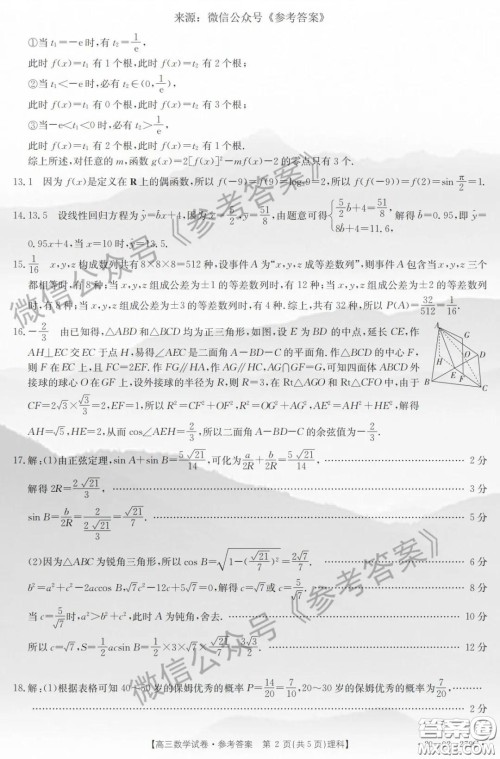 来源：微信公众号《参考答案》
①当 t₁=−e 时,有 t₂=1/e,
此时 f(x)=t₁ 有 1 个根,此时 f(x)=t₂ 有 2 个根;
②当 t₁<−e 时,必有 t₂∈(0,1/e),
此时 f(x)=t₁ 有 0 个根,此时 f(x)=t₂ 有 3 个根;
③当−e<t₁<0 时,必有 t₂>1/e,
此时 f(x)=t₁ 有 2 个根,此时 f(x)=t₂ 有 1 个根.
综上所述,对任意的 m,函数 g(x)=2[f(x)]²−mf(x)−2 的零点只有 3 个.
13.1 因为 f(x)是定义在 R 上的偶函数,所以 f(−9)=f(9)=log₃9=2,所以 f(f(−9))=f(2)=sin π/2=1.
14.13.5 设线性回归方程为 ŷ=b̂x+4,因为 x̄=5/2,ȳ=51/8,由题意可得{5/2 b̂+4=51/8, 8b̂+4=11.6, 解得 b̂=0.95,即 ŷ=
0.95x+4,当 x=10 时,y=13.5.
15.1/16 x,y,z 构成数列共有 8×8×8=512 种,设事件 A 为“x,y,z 成等差数列”,则事件 A 包含当 x,y,z 三个
都相等时,有 8 种;当 x,y,z 组成公差为±1 的等差数列时,有 12 种;当 x,y,z 组成公差为±2 的等差数列时,
有 8 种;当 x,y,z 组成公差为±3 的等差数列时,有 4 种.综上,共有 32 种,所以 P(A)=32/512=1/16.
16.−2/3 由已知得,△ABD 和△BCD 均为正三角形,如图,设 E 为 BD 的中点,延长 CE,作
AH⊥EC 交 EC 于点 H,易得∠AEC 是二面角 A−BD−C 的平面角.作△BCD 的中心 F,
则 F 在 EC 上,且 FC=2EF.作 FG∥HA,作 AG∥HC,AG∩GF=G,可知四面体 ABCD 外
接球的球心 O 在 GF 上,设外接球的半径为 R,则 R=3,在 Rt△AGO 和 Rt△CFO 中,由于
CF=2√3×√3/3=2,OF=1,所以 R²=CF²+OF²,R²=OG²+AG²,AE²=AH²+HE²,解得
AH=√5,HE=2,从而 cos∠AEH=2/3,所以二面角 A−BD−C 的余弦值为−2/3.
17.解:(1)由正弦定理,sin A+sin B=5√21/14,可化为 a/2R+b/2R=5√21/14. 2 分
解得 2R=2√21/3, 3 分
sin B=b/2R=2/(2√21/3)=√21/7. 5 分
(2)因为△ABC 为锐角三角形,所以 cos B=√(1−(√21/7)²)=2√7/7. 6 分
b²=a²+c²−2accos B,即 7c²−12√7c+5√7=0,解得 c=√7或 c=5/√7. 8 分
当 c=5/√7时,a²>b²+c²,此时 A 为钝角,舍去. 10 分
所以 c=√7,S=1/2 acsin B=1/2×3×√7×√21/7=3√21/2. 12 分
18.解:(1)根据表格可知 40~50 岁的保姆优秀的概率 P=14/20=7/10,20~30 岁的保姆优秀的概率为 7/10.
2 分
【高三数学试卷·参考答案 第 2 页(共 5 页)理科】
微信公众号《参考答案》
微信公众号《参考答案》